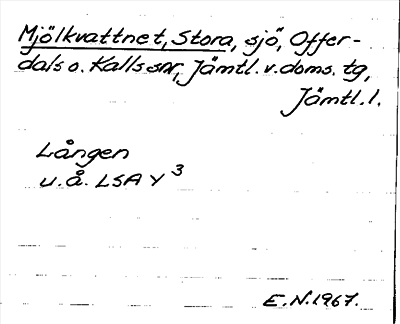 Mjölkvattnet, Stora, sjö, Offer-
dals o. Kalls snr, Jämtl. v. doms. tg,
Jämtl. l.
Lången
u. å. LSA Y 3
E. N. 1967.